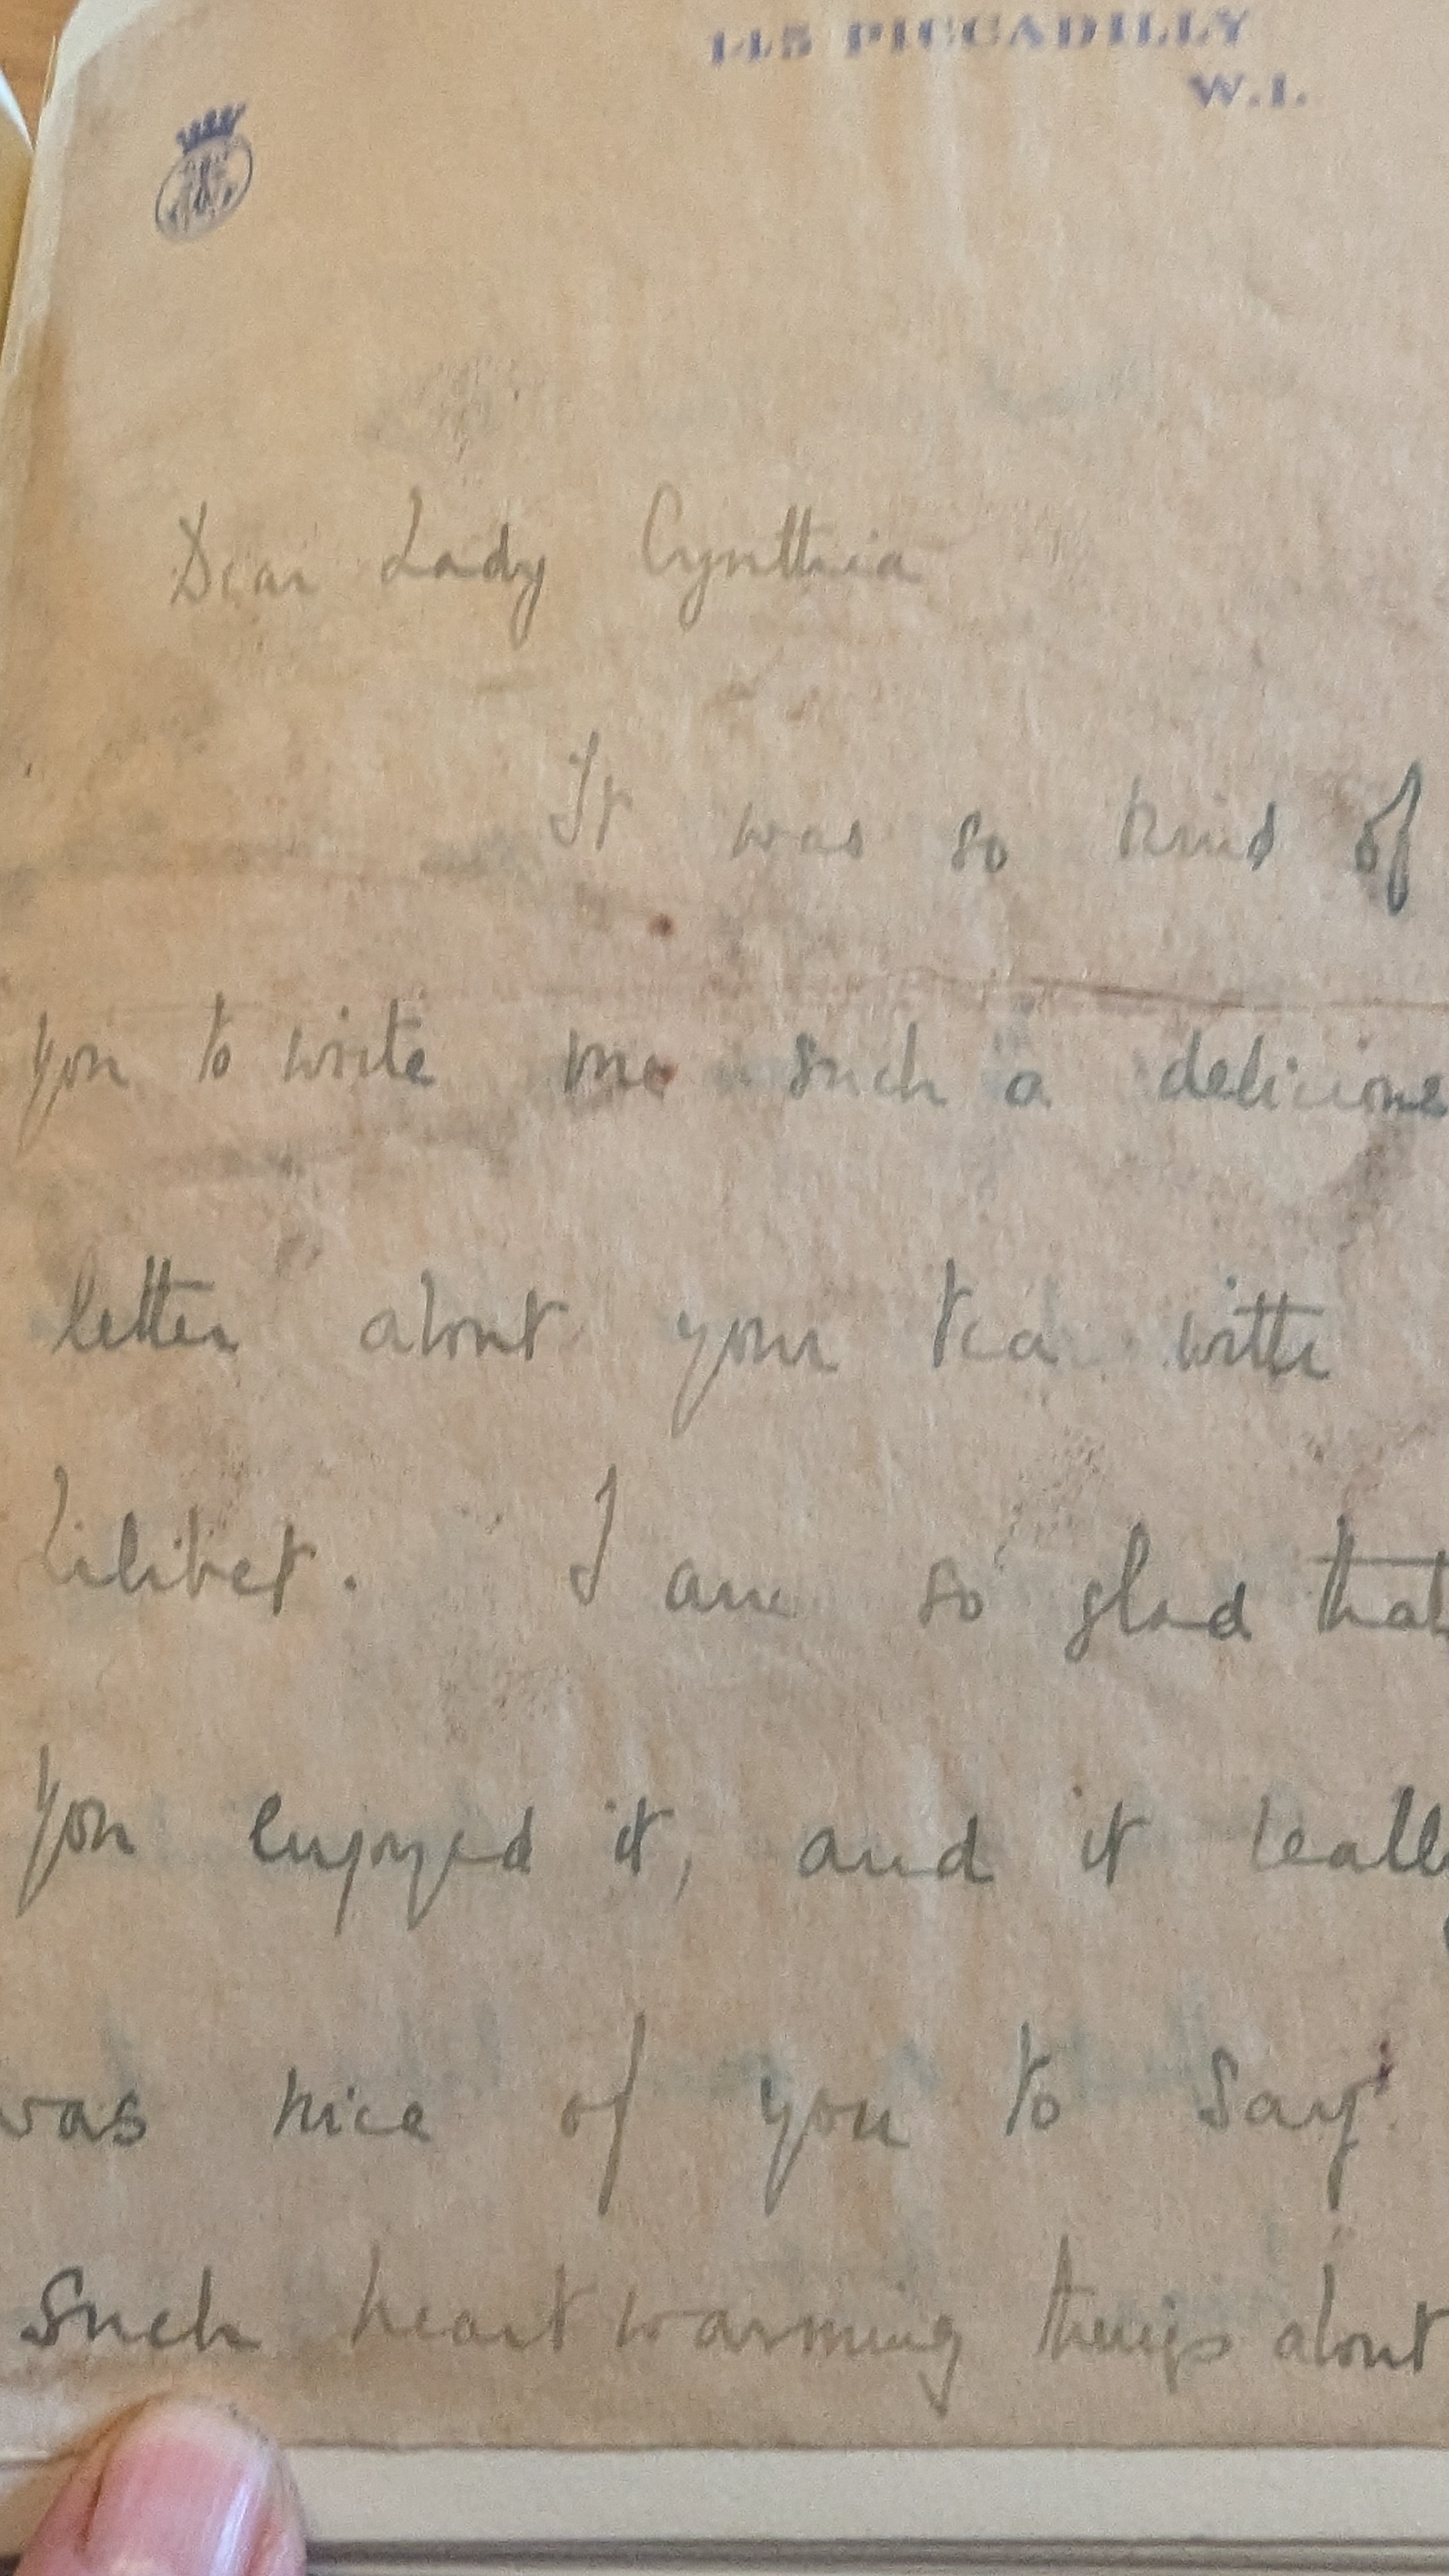 145 PICCADILLY
W.1.
Dear Lady Cynthia
It was so kind of
you to write me such a delicious
letter about your tea with
Lilibet. I am so glad that
you enjoyed it, and it really
was nice of you to say
such heart warming things about